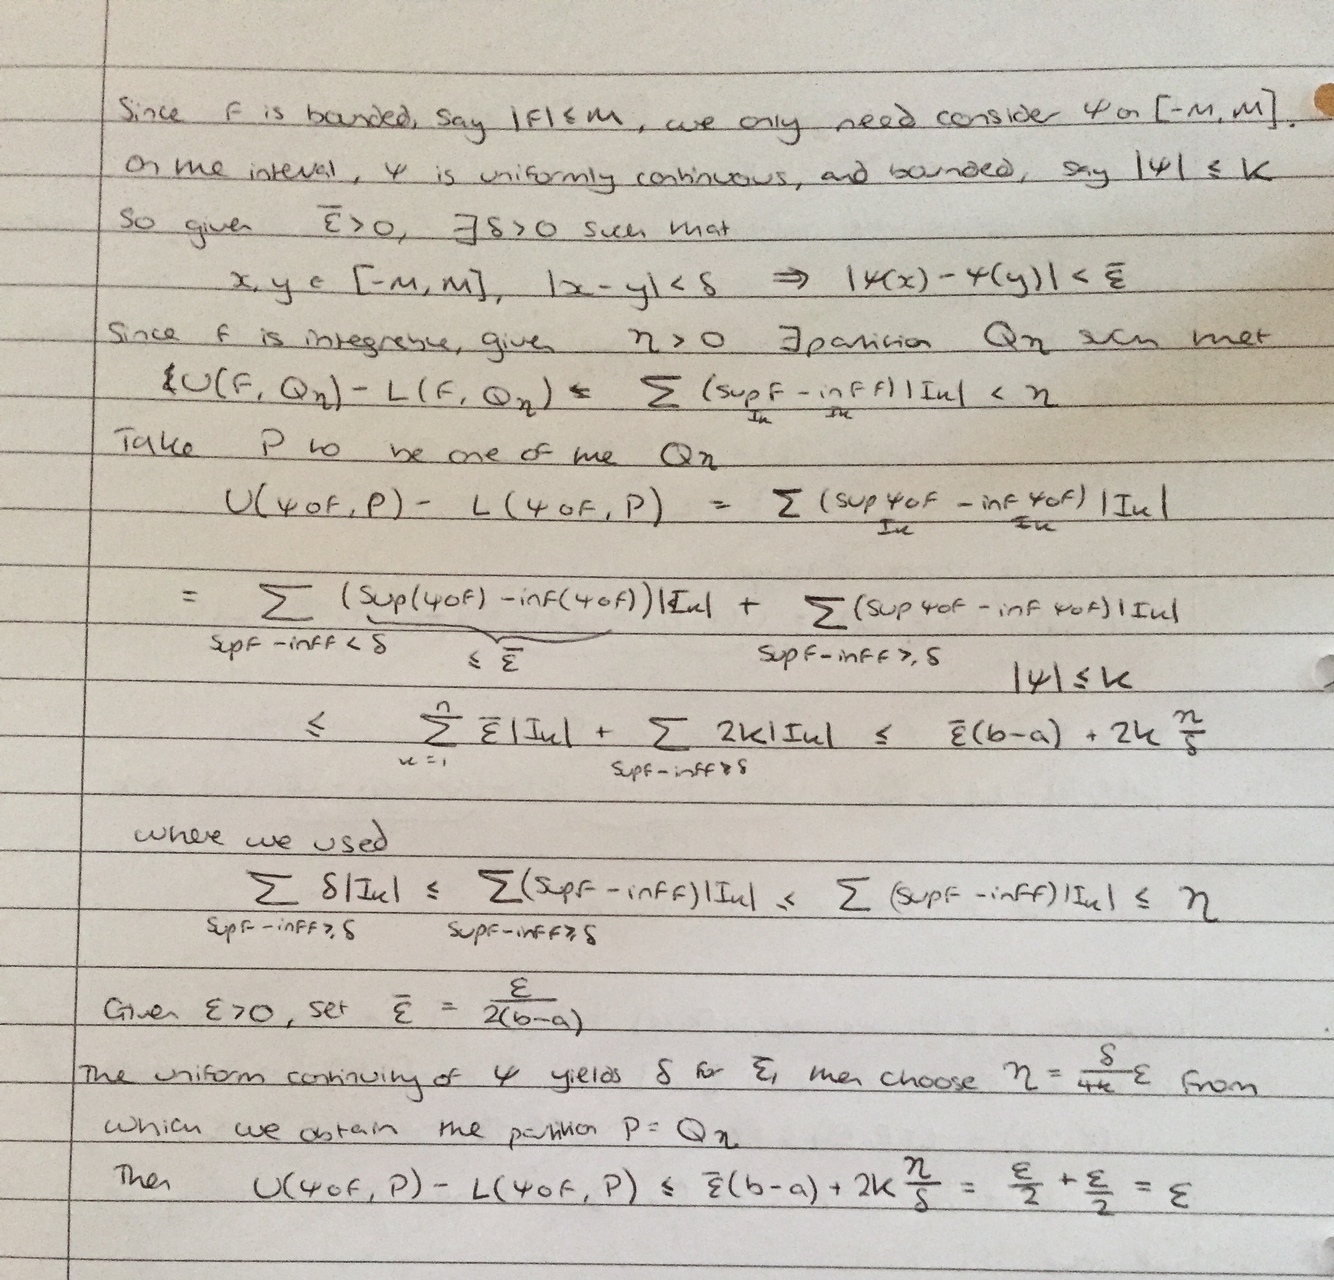 Since f is bounded, say |f| ≤ M, we only need consider ψ on [-M, M].
On the interval, ψ is uniformly continuous, and bounded, say |ψ| ≤ K
So given ε̄ > 0, ∃ δ > 0 such that
x, y ∈ [-M, M], |x - y| < δ ⇒ |ψ(x) - ψ(y)| < ε̄
Since f is integrable, given η > 0 ∃ partition Qη such that
U(f, Qη) - L(f, Qη) ≤ Σ (sup_{Ik} f - inf_{Ik} f) |Ik| < η
Take P to be one of the Qη
U(ψof, P) - L(ψof, P) = Σ (sup_{Ik} ψof - inf_{Ik} ψof) |Ik|
= Σ (sup(ψof) - inf(ψof)) |Ik| + Σ (sup ψof - inf ψof) |Ik|
sup f - inf f < δ ≤ ε̄ sup f - inf f ≥ δ
|ψ| ≤ K
≤ Σ_{k=1}^{n} ε̄ |Ik| + Σ_{sup f - inf f ≥ δ} 2K |Ik| ≤ ε̄(b-a) + 2K η/δ
where we used
Σ δ|Ik| ≤ Σ (sup f - inf f) |Ik| ≤ Σ (sup f - inf f) |Ik| ≤ η
sup f - inf f ≥ δ sup f - inf f ≥ δ
Given ε > 0, set ε̄ = ε/2(b-a)
The uniform continuity of ψ yields δ for ε̄, then choose η = δ/4K ε from
which we obtain the partition P = Qη
Then U(ψof, P) - L(ψof, P) ≤ ε̄(b-a) + 2K η/δ = ε/2 + ε/2 = ε